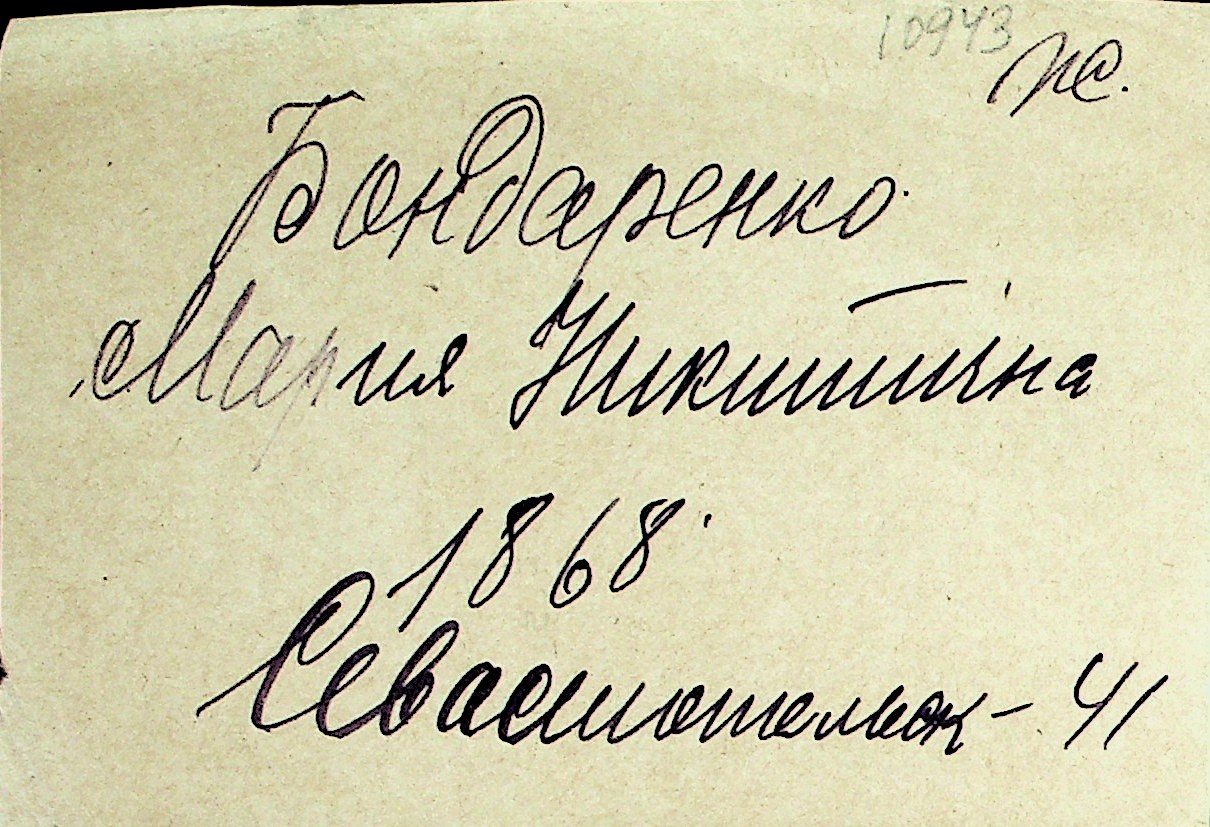 10943
Бондаренко
Мария Никитична
1868
Севастопольск - 41